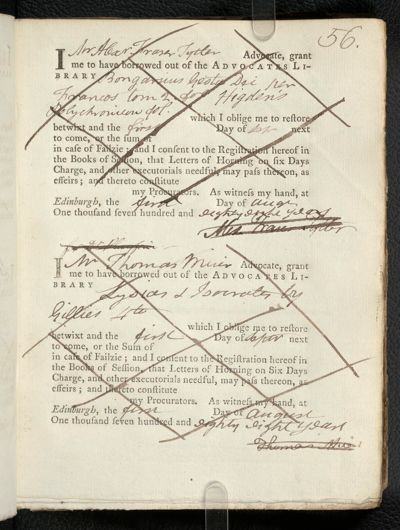 56.
I Mr Alexr Fraser Tytler Advocate, grant
me to have borrowed out of the ADVOCATES LI-
BRARY Bongarsius Gesta Dei per
Francos tom 2 fol Higdens
Polychronicon fol.
which I oblige me to restore
betwixt and the first Day of next
to come, or the sum of
in case of Failzie; and I consent to the Registration hereof in
the Books of Session, that Letters of Horning on six Days
Charge, and other executorials needful, may pass thereon, as
effeirs; and thereto constitute
my Procurators. As witness my hand, at
Edinburgh, the first Day of August
One thousand seven hundred and eighty eight years
Tytler
I Mr Thomas Muir Advocate, grant
me to have borrowed out of the ADVOCATES LI-
BRARY Lysias & Isocrates by
Gillies 4to
which I oblige me to restore
betwixt and the first Day of next
to come, or the Sum of
in case of Failzie; and I consent to the Registration hereof in
the Books of Session, that Letters of Horning on Six Days
Charge, and other executorials needful, may pass thereon, as
effeirs; and thereto constitute
my Procurators. As witness my hand, at
Edinburgh, the first Day of august
One thousand seven hundred and eighty eight years
Thomas Muir